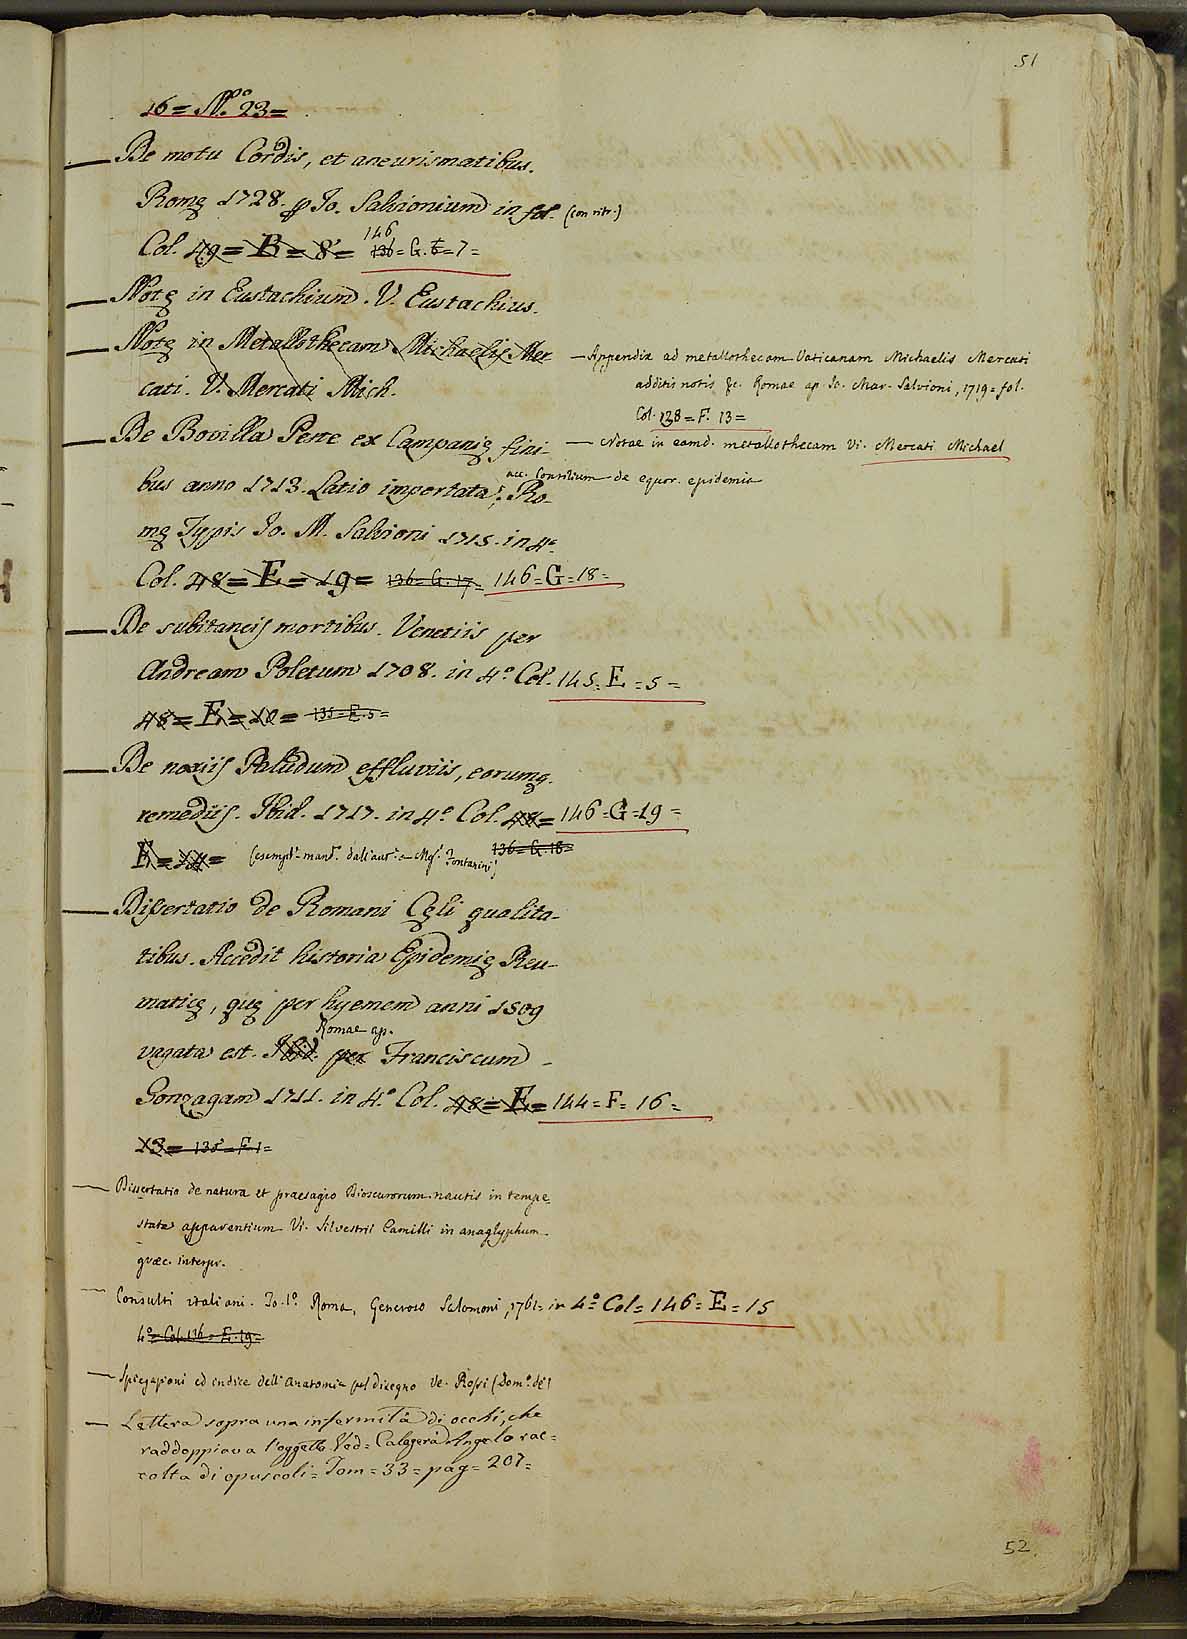 51
16 = N.º 23 =
— De motu Cordis, et aneurismatibus.
Romę 1728. p Jo. Salvionium in fol. (con ritr.)
Col. 49 = B = 8 = 136 = G. 6 = 7 =
146
— Notę in Eustachium. V. Eustachius.
— Notę in Metallothecam Michaelis Mer
cati. V. Mercati Mich.
— Appendix ad metallothecam Vaticanam Michaelis Mercati
additis notis &c. Romae ap. Jo. Mar. Salvioni, 1719 = fol.
Col. 138 = F. 13 =
— Notae in eamd. metallothecam Vi. Mercati Michael
— De Bovilla Peste ex Campanię fini-
acc. Consilium de equor. epidemia
bus anno 1713. Latio importata; Ro-
mę Typis Jo. M. Salvioni 1715. in 4º
Col. 48 = E = 19 = 136 = G. 17 = 146 = G = 18 =
— De subitaneis mortibus. Venetiis per
Andream Poletum 1708. in 4º Col. 145 = E = 5 =
48 = E = 10 = 135 = E. 5 =
— De noxiis Paludum effluviis, eorumq.
remediis. Ibid. 1717. in 4º Col. 48 = 146 = G = 19 =
136 = G. 18 =
E = 14 = (esempl.e mand.º dall'aut.e a Mg.r Fontanini)
— Dissertatio de Romani Cęli qualita-
tibus. Accedit historia Epidemię Reu-
maticę, quę per hyemem anni 1509
Romae ap.
vagata est. Ibid. per Franciscum
Gonzagam 1711. in 4º Col. 48 = E = 144 = F = 16 =
13 = 135 = F. 1 =
— Dissertatio de natura et praesagio Dioscurorum nautis in tempe
state apparentium Vi. Silvestrii Camilli in anaglyphum
græc. interpr.
— Consulti italiani. To. 1º Roma, Generoso Salomoni, 1761 = in 4º Col = 146 = E = 15
4º = Col. 136 = E. 19 =
— Spiegazioni ed indice dell'Anatomia pel disegno Ve. Rossi (Dom.º de)
— Lettera sopra una infermità di occhi, che
raddoppiava l'oggetto Ved = Calogerà Angelo rac =
colta di opuscoli = Tom = 33 = pag = 207 =
52